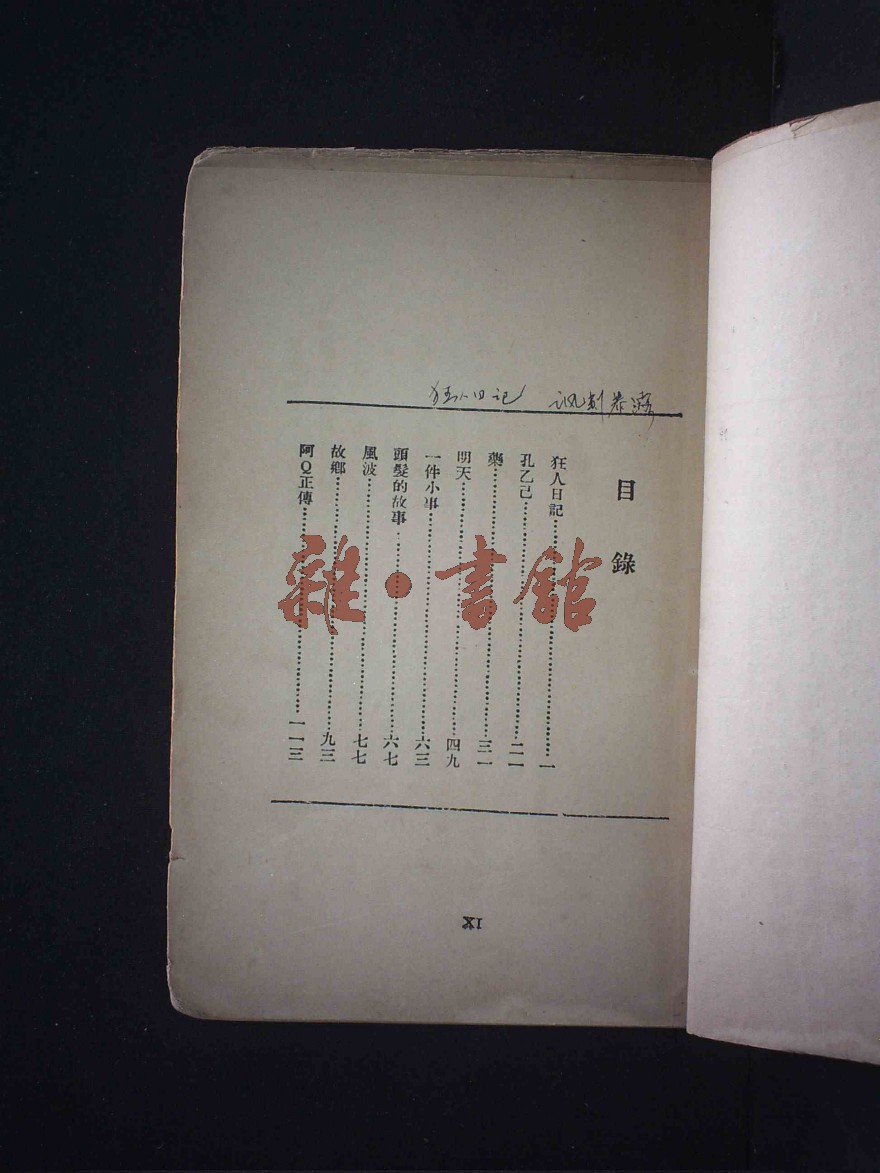 狂人日记 讽刺暴露
目錄
狂人日記⋯⋯⋯⋯一
孔乙己⋯⋯⋯⋯二一
藥⋯⋯⋯⋯三一
明天⋯⋯⋯⋯四九
一件小事⋯⋯⋯⋯六三
頭髮的故事⋯⋯⋯⋯六七
風波⋯⋯⋯⋯七七
故鄉⋯⋯⋯⋯九三
阿Q正傳⋯⋯⋯⋯一一三
雜·書館